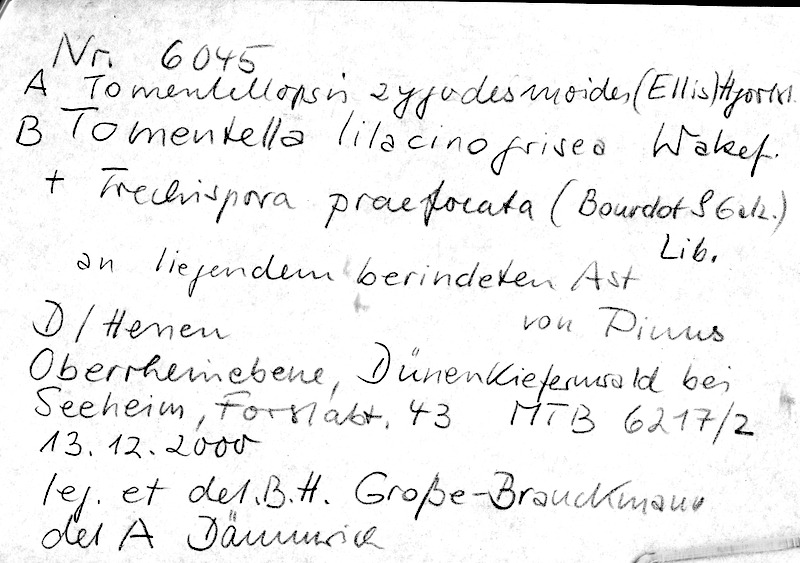 Nr. 6045
A Tomentellopsis zygodesmoides (Ellis) Hjortst.
B Tomentella lilacinogrisea Wakef.
+ Trechispora praefocata (Bourdot & Galz.)
Lib.
an liegendem berindeten Ast
von Pinus
D/Hessen
Oberrheinebene, Dünenkiefernwald bei
Seeheim, Forstabt. 43 MTB 6217/2
13.12.2000
leg. et det. B.H. Große-Brauckmann
det A Dämmrich